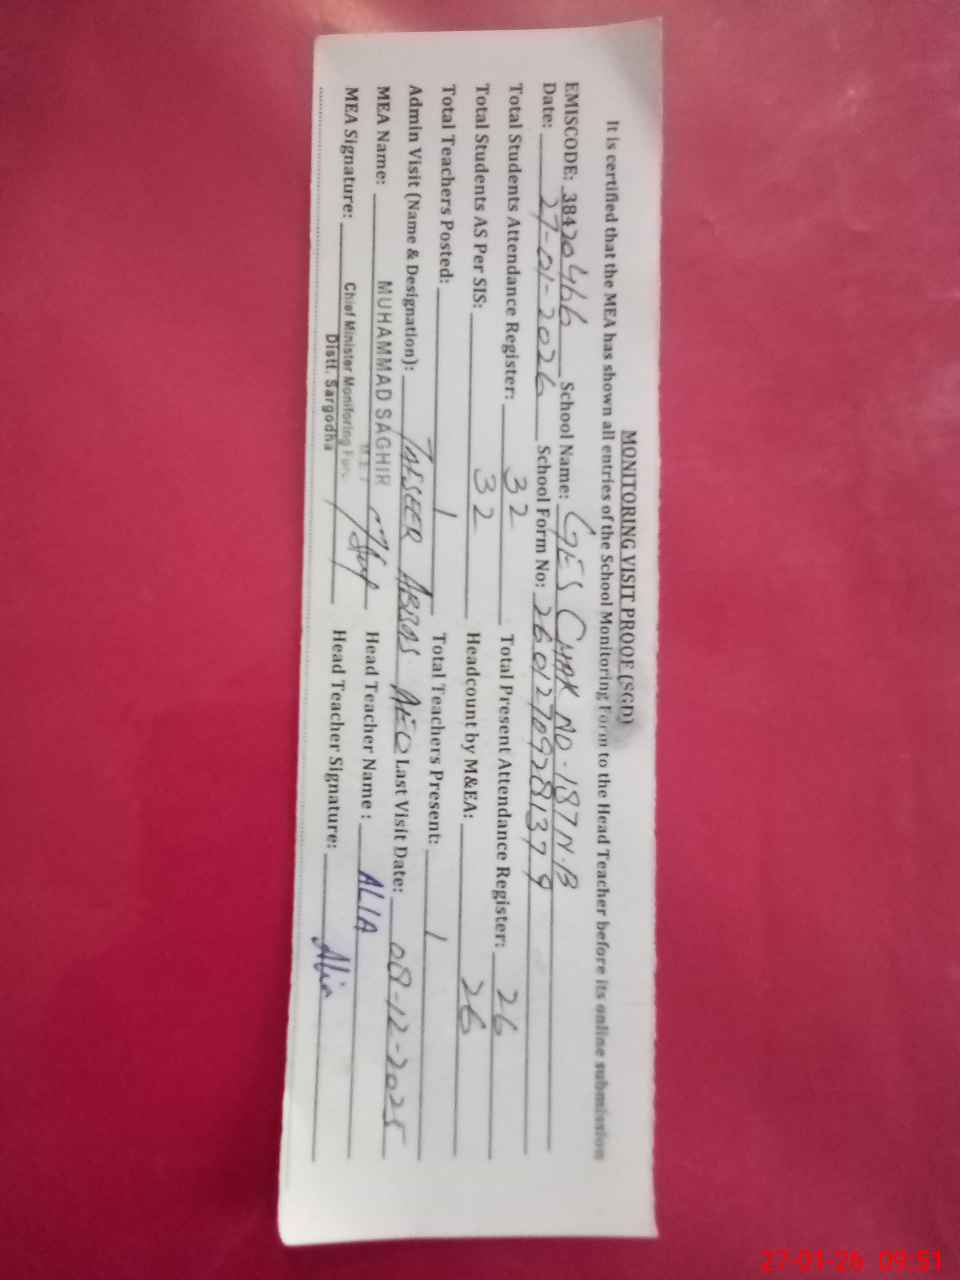 MONITORING VISIT PROOF (SGD)
It is certified that the MEA has shown all entries of the School Monitoring Form to the Head Teacher before its online submission
EMISCODE: 38420466 School Name: GES CHAK NO-187N.B
Date: 27-01-2026 School Form No: 26012709281379
Total Students Attendance Register: 32 Total Present Attendance Register: 26
Total Students AS Per SIS: 32 Headcount by M&EA: 26
Total Teachers Posted: 1 Total Teachers Present: 1
Admin Visit (Name & Designation): ABBAS AEO Last Visit Date: 08-12-2025
MEA Name: MUHAMMAD SAGHIR Head Teacher Name : ALIA
MEA Signature: Chief Minister Monitoring Head Teacher Signature: Alia
Distt. Sargodha
27-01-26 09:51